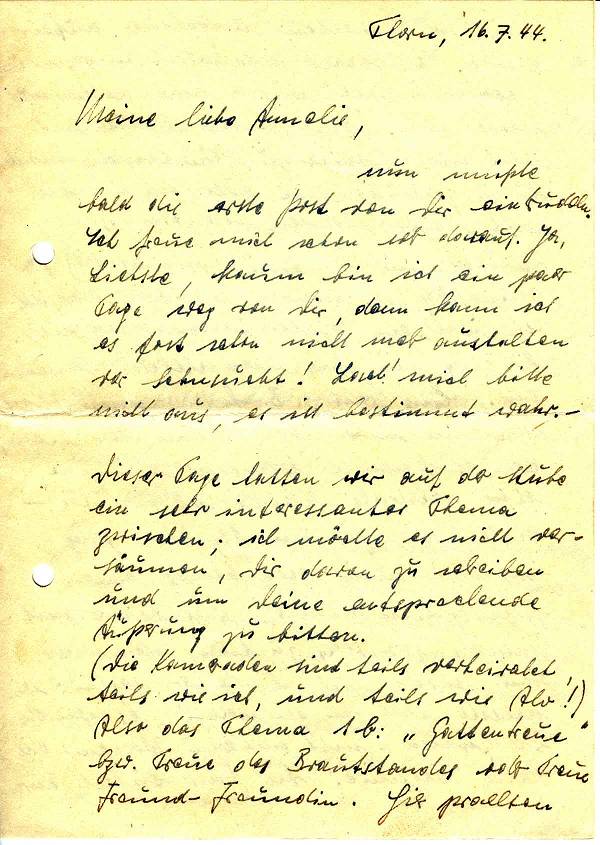 Thorn, 16.7.44.
Meine liebe Annelie,
nun müßte
bald die erste Post von Dir eintrudeln.
Ich freue mich schon sehr darauf. Ja,
Liebste, kaum bin ich ein paar
Tage weg von Dir, dann kann ich
es fast schon nicht mehr aushalten
vor Sehnsucht! Lach' mich bitte
nicht aus, es ist bestimmt wahr. –
Dieser Tage hatten wir auf der Stube
ein sehr interessantes Thema
zwischen; ich möchte es nicht ver-
säumen, Dir davon zu schreiben
und um Deine entsprechende
Äußerung zu bitten.
(Die Kameraden sind teils verheiratet,
teils wie ich, und teils wie !)
Also das Thema : „Gattentreue"
bzw. Treue des Brautstandes Treue
Freund-Freundin. Hier prallten